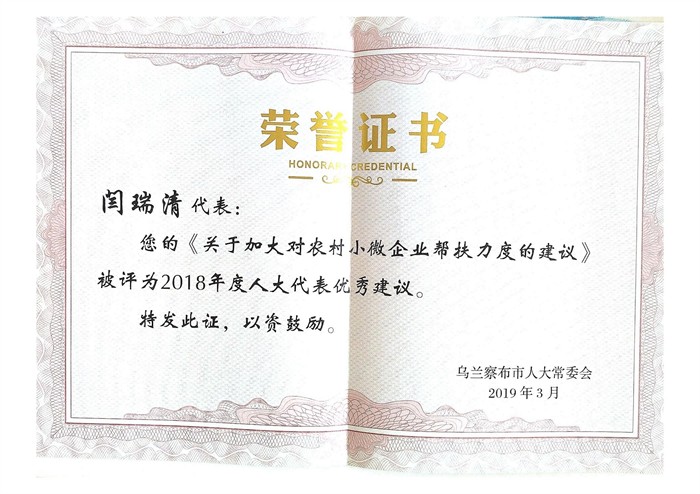 荣誉证书
HONORARY CREDENTIAL
闫瑞清代表：
您的《关于加大对农村小微企业帮扶力度的建议》
被评为2018年度人大代表优秀建议。
特发此证，以资鼓励。
乌兰察布市人大常委会
2019年3月